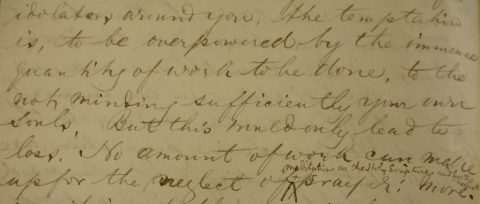 idolaters around you, the temptation
is, to be overpowered by the immense
quantity of work to be done, to the
not minding sufficiently your own
souls. But this would only lead to
loss. No amount of work can make
meditation on the Holy Scriptures and
up for the neglect of prayer: more